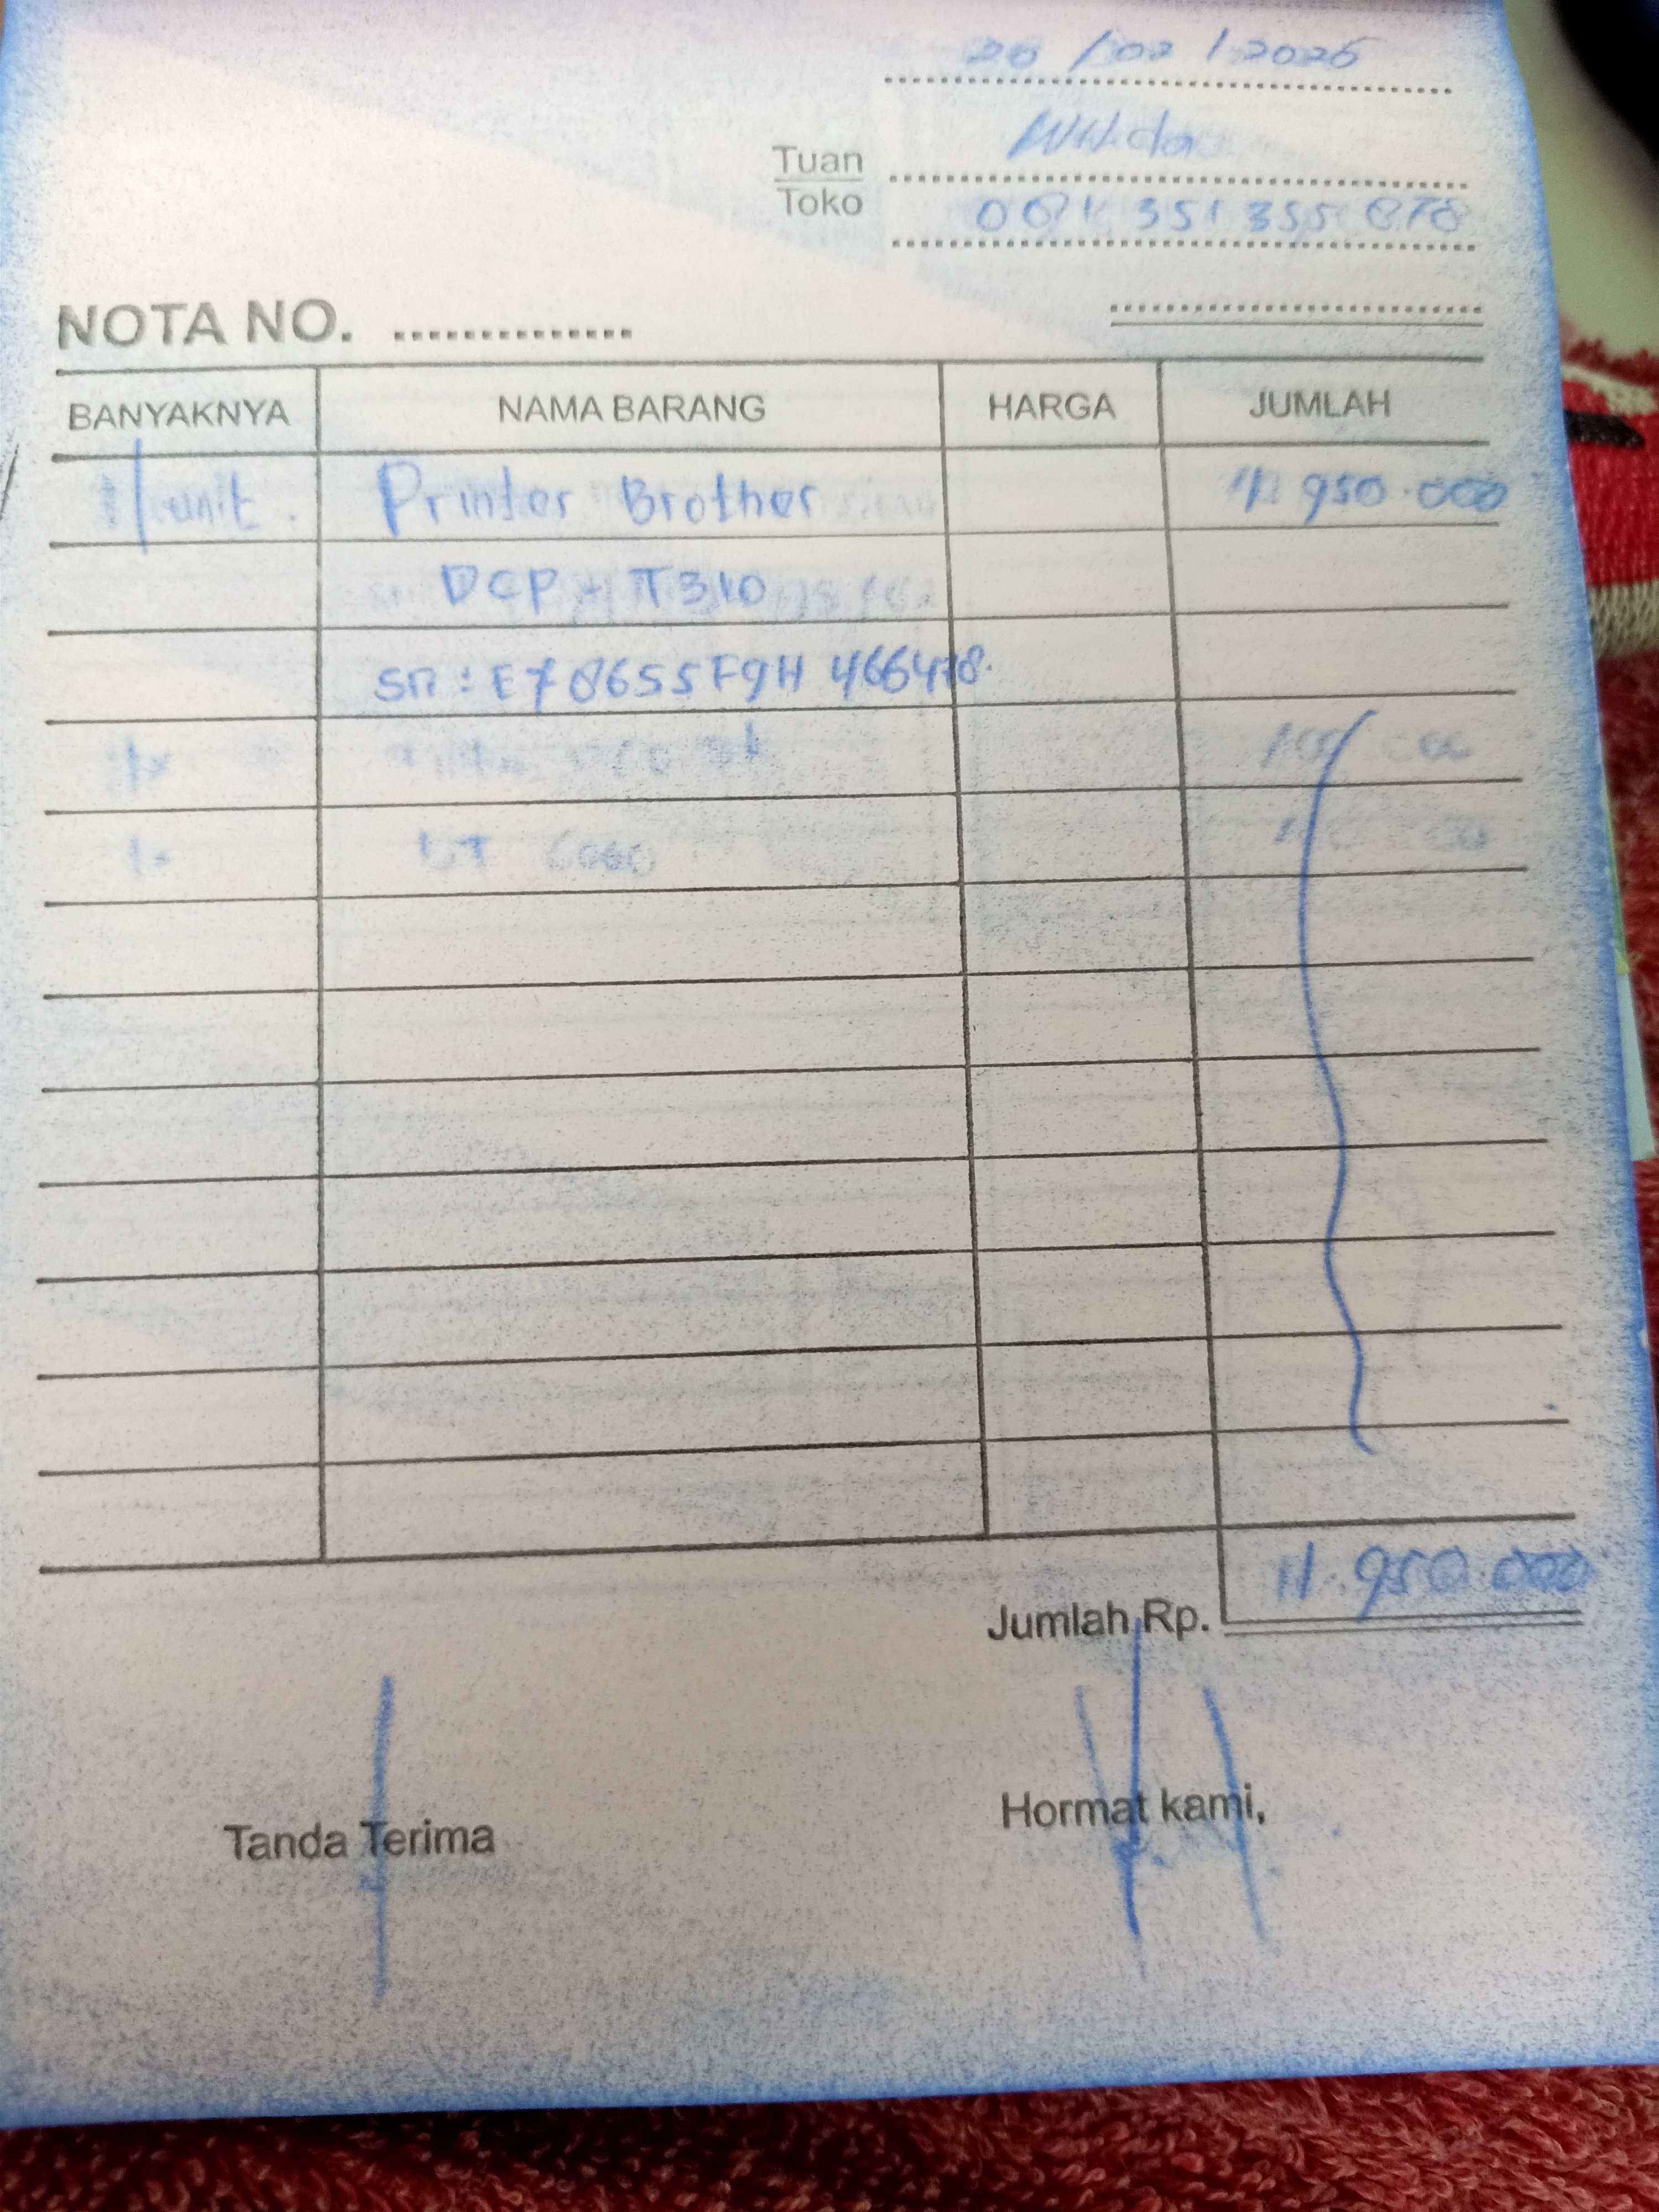 20 / 02 / 2026
Tuan Wilda
Toko 081 351 355 878
NOTA NO.
BANYAKNYA NAMA BARANG HARGA JUMLAH
1 unit Printer Brother 1.950.000
DCP - T310
SN : E78655F9H 466478.
Jumlah Rp. 1.950.000
Tanda Terima Hormat kami,